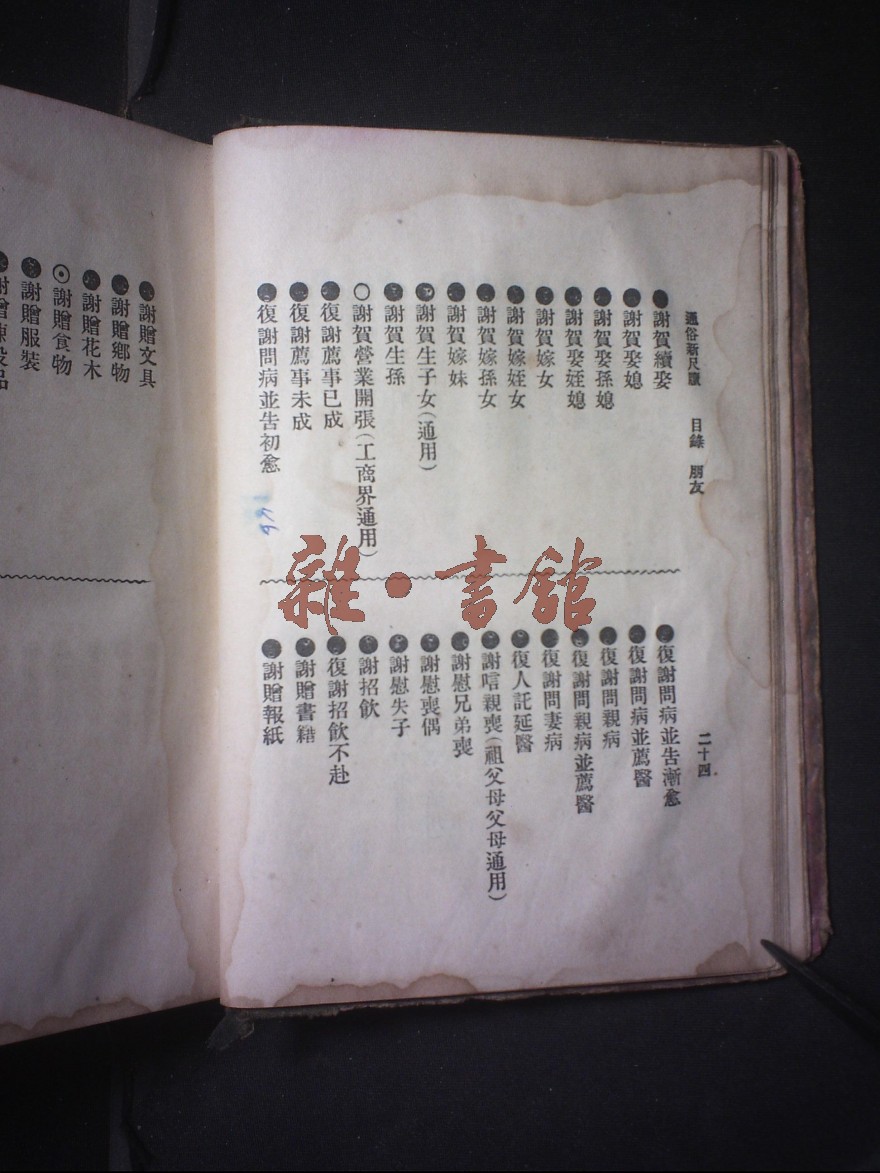 通俗新尺牘 目錄 朋友 二十四
謝賀續娶
謝賀娶媳
謝賀娶孫媳
謝賀娶姪媳
謝賀嫁女
謝賀嫁姪女
謝賀嫁孫女
謝賀嫁妹
謝賀生子女(通用)
謝賀生孫
謝賀營業開張(工商界通用)
復謝薦事已成
復謝薦事未成
復謝問病並告初愈
復謝問病並告漸愈
復謝問病並薦醫
復謝問親病
復謝問親病並薦醫
復謝問妻病
復人託延醫
謝唁親喪(祖父母父母通用)
謝慰兄弟喪
謝慰喪偶
謝慰失子
謝招飲
復謝招飲不赴
謝贈書籍
謝贈報紙
謝贈文具
謝贈鄉物
謝贈花木
謝贈食物
謝贈服裝
雜·書館